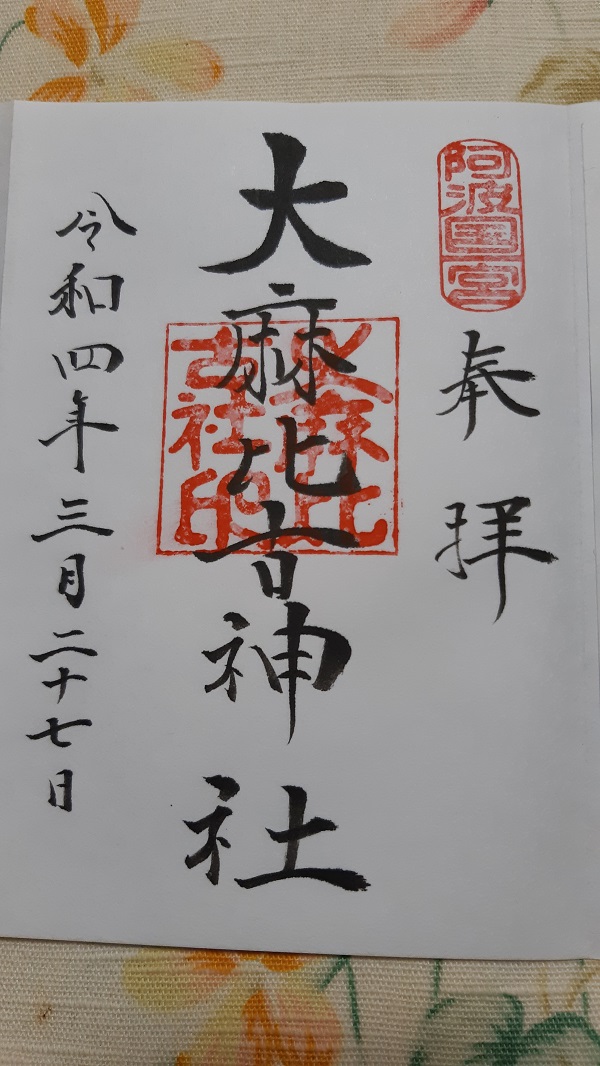 阿波国一宮
奉拝
大麻比古神社
大麻比
古社印
令和四年三月二十七日